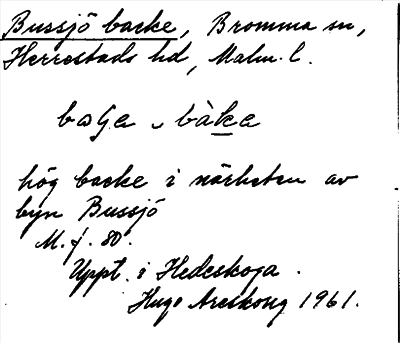 Bussjö backe, Bromma sn,
Herrestads hd, Malm. l.
hög backe i närheten av
byn Bussjö
M. f. 80.
Uppt. i Hedeskoga.
Hugo Areskoug 1961.